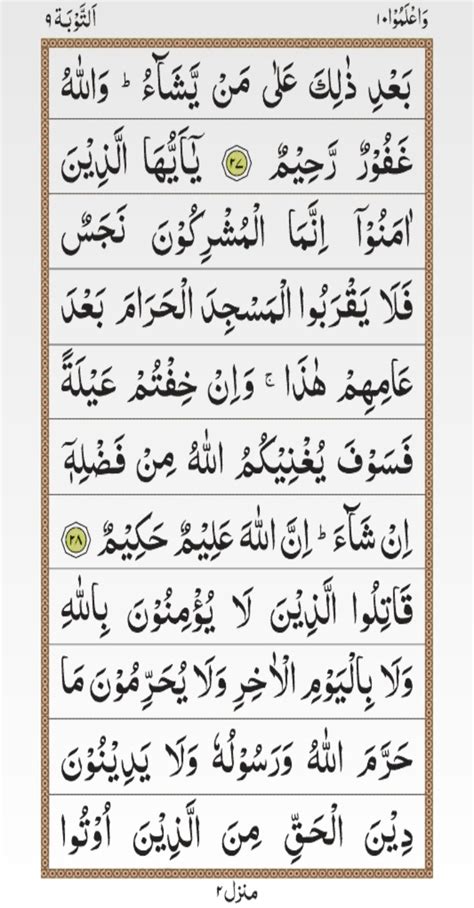 وَاعْلَمُوْا ۱۰ اَلتَّوْبَة ۹
بَعْدِ ذٰلِكَ عَلٰى مَنْ يَّشَآءُ ؕ وَاللّٰهُ
غَفُوْرٌ رَّحِيْمٌ ۲۷ يٰۤاَيُّهَا الَّذِيْنَ
اٰمَنُوْۤا اِنَّمَا الْمُشْرِكُوْنَ نَجَسٌ
فَلَا يَقْرَبُوا الْمَسْجِدَ الْحَرَامَ بَعْدَ
عَامِهِمْ هٰذَا ۚ وَاِنْ خِفْتُمْ عَيْلَةً
فَسَوْفَ يُغْنِيْكُمُ اللّٰهُ مِنْ فَضْلِهٖۤ
اِنْ شَآءَ ؕ اِنَّ اللّٰهَ عَلِيْمٌ حَكِيْمٌ ۲۸
قَاتِلُوا الَّذِيْنَ لَا يُؤْمِنُوْنَ بِاللّٰهِ
وَلَا بِالْيَوْمِ الْاٰخِرِ وَلَا يُحَرِّمُوْنَ مَا
حَرَّمَ اللّٰهُ وَرَسُوْلُهٗ وَلَا يَدِيْنُوْنَ
دِيْنَ الْحَقِّ مِنَ الَّذِيْنَ اُوْتُوا
منزل ۲